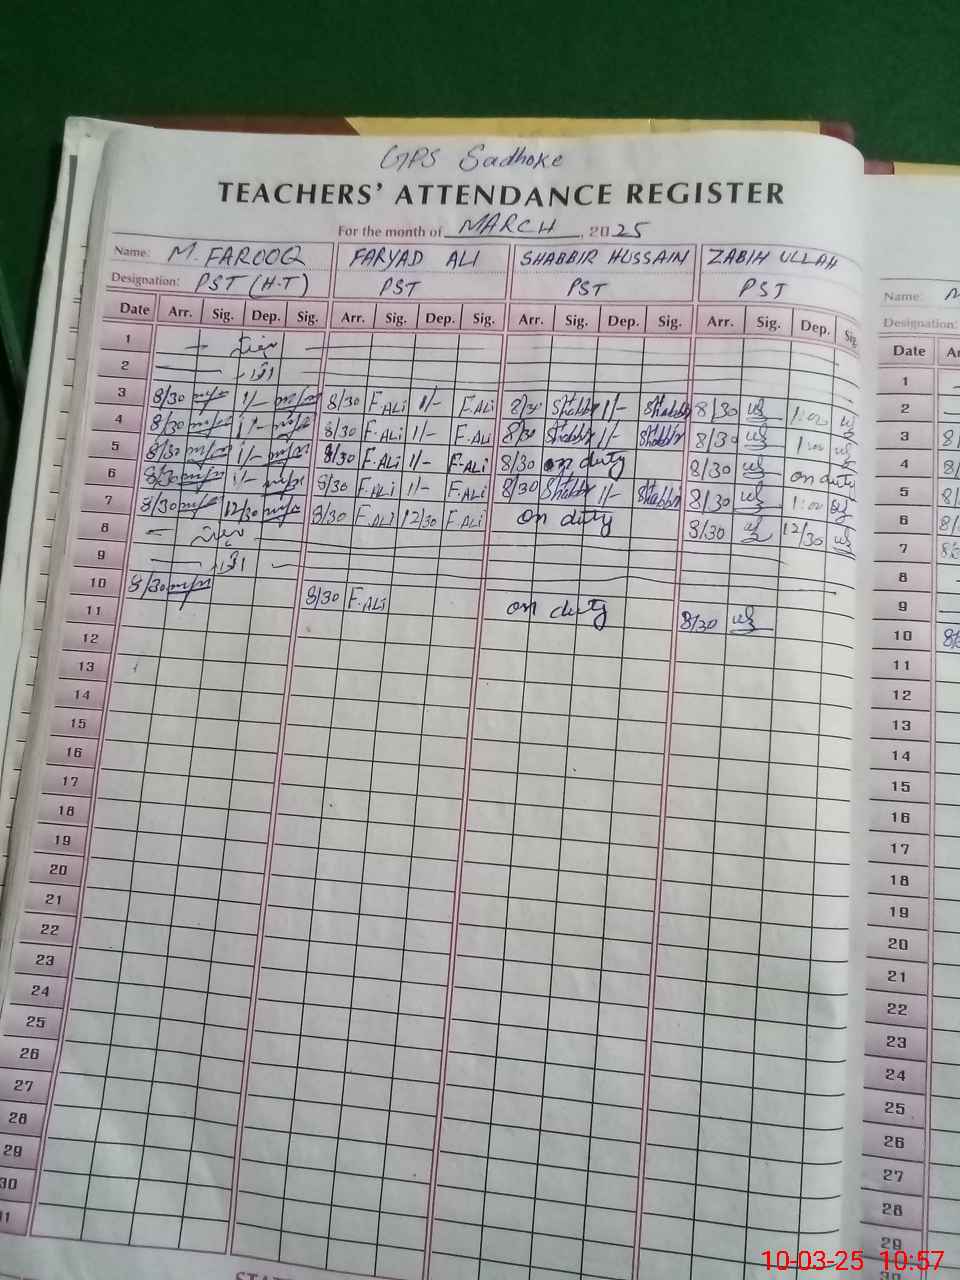 GPS Sadhoke
TEACHERS' ATTENDANCE REGISTER
For the month of MARCH, 2025
Name: M. FAROOQ FARYAD ALI SHABBIR HUSSAIN ZABIH ULLAH
Designation: PST (H-T) PST PST PST
Date Arr. Sig. Dep. Sig. Arr. Sig. Dep. Sig. Arr. Sig. Dep. Sig. Arr. Sig. Dep. Sig.
1
2 اتوار
3 8/30 1/- 8/30 F.ALi 1/- F.ALi 8/30 Shabbir 1/- Shabbir 8/30 1:00
4 8/30 1/- 8/30 F.ALi 1/- F.ALi 8/30 Shabbir 1/- Shabbir 8/30 1:00
5 8/30 1/- 8/30 F.ALi 1/- F.ALi 8/30 on duty 8/30 on duty
6 8/30 1/- 8/30 F.ALi 1/- F.ALi 8/30 Shabbir 1/- Shabbir 8/30 1:00
7 8/30 12/30 8/30 F.ALi 12/30 F.ALi on duty 8/30 12/30
8
9 اتوار
10 8/30 8/30 F.ALi on duty 8/30
11
12
13
14
15
16
17
18
19
20
21
22
23
24
25
26
27
28
29
30
Name:
Designation:
Date
1
2
3
4
5
6
7
8
9
10
11
12
13
14
15
16
17
18
19
20
21
22
23
24
25
26
27
28
29
10-03-25 10:57